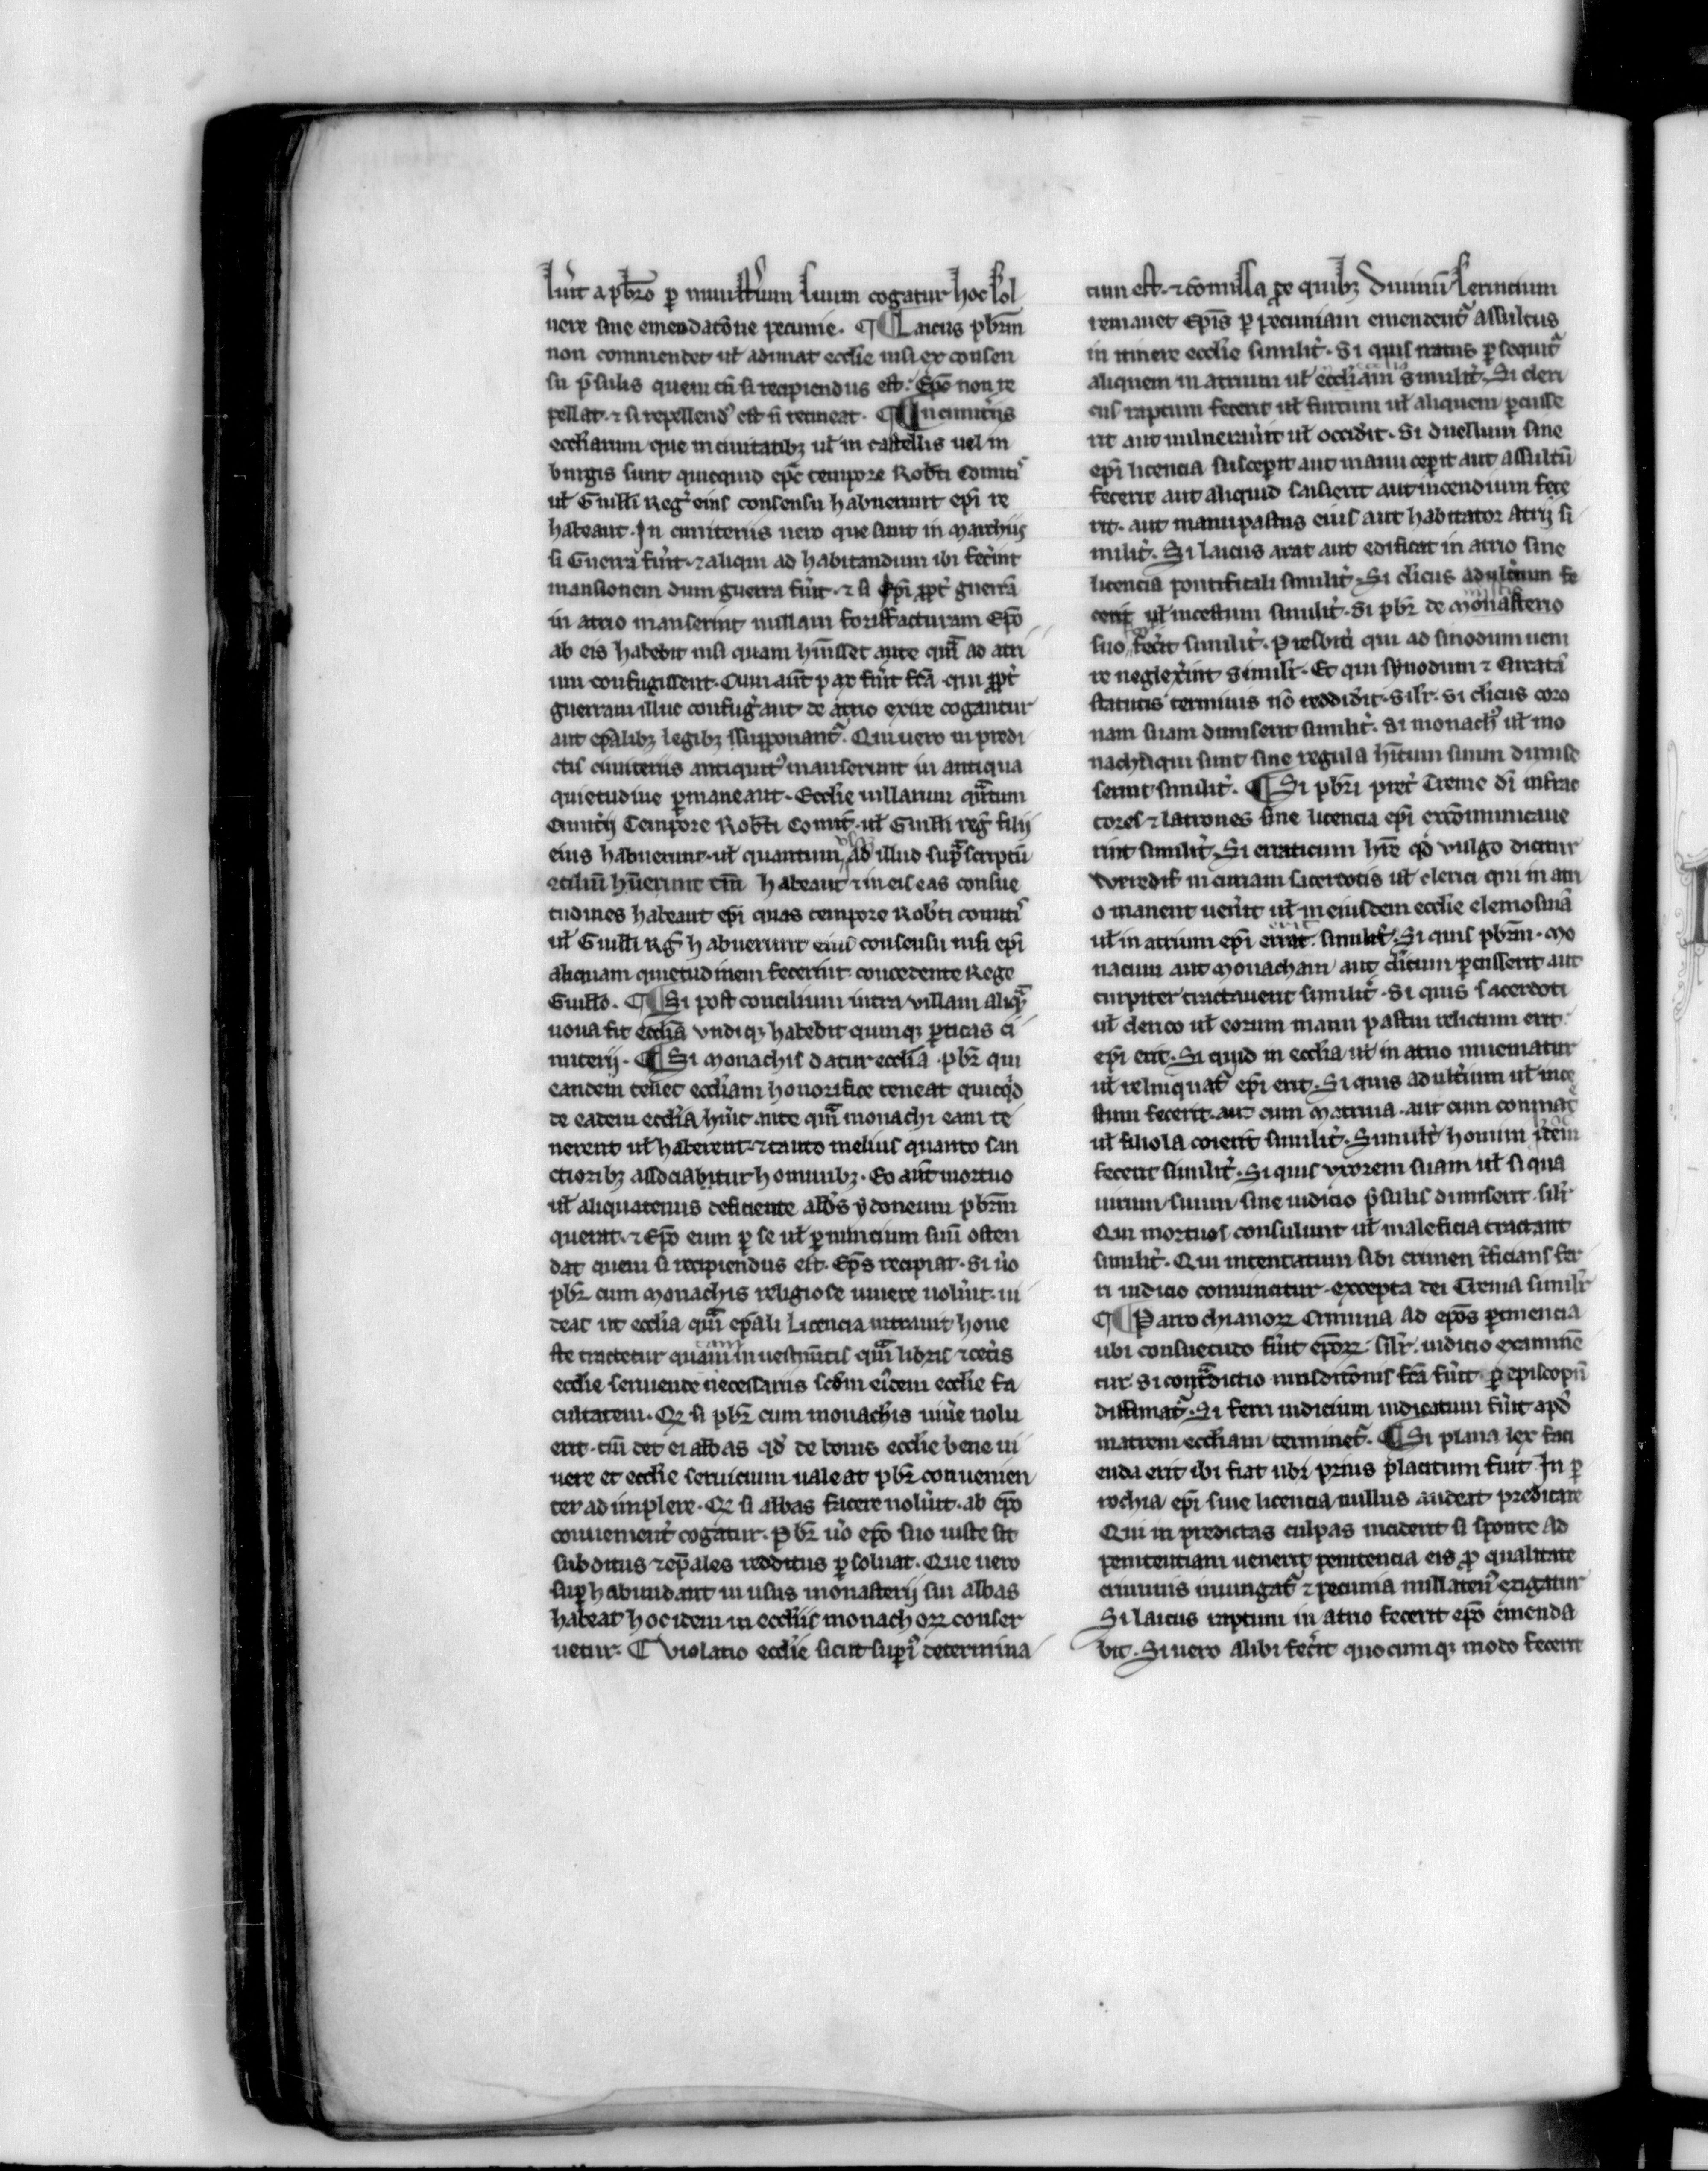 luīt a pbr̄o ꝑ ministrum suum cogatur hoc sol
uere sine emendatōne pecunie. ¶ Laicus pbrm̄
non commendet ul̄ adimat ecclīe nisi ex consen
su p̄sulis quem tn̄ si recipiendus est. Ep̄o non re
pellat. ⁊ si repellendꝰ est n̄ retineat. ¶ In cimit̄iis
eccl̄iarum que in ciuitatibꝫ ul̄ in castellis uel in
burgis sunt quicquid ep̄i tempore Robt̄i Comitis
ul̄ Guill̄i Reḡ eius consensu habuerunt ep̄i re
habeant. In cimiteriis uero que sunt in Marchiis
si Guerra fūit. ⁊ aliqui ad habitandum ibi fec̄int
mansionem dum guerra fūit. ⁊ si ipsi ꝓpt̄ guerrā
in atrio manserint nullam forisfacturam Ep̄o
ab eis habebit nisi quam hūisset ante qm̄ ad atri
um confugissent. Cum aut̄ pax fūit fcā. qui ꝓpt̄
guerram illuc confuḡant de atrio exire cogantur
aut ep̄alibꝫ legibꝫ supponant̄. Qui uero in predi
ctis cimiteriis antiquitꝰ manserunt in antiqua
quietudine ꝑmaneant. Ecclīe uillarum q̄ntum
Cimit̄ii Tempore Robt̄i Comit̄. ul̄ Guill̄i reḡ filii
eius habuerunt. ul̄ quantum ad illud sup̄scriptū
ꝯciliū hūerunt tm̄ habeant ⁊ in eis eas consue
tudines habeant ep̄i quas tempore Robt̄i comitis
ul̄ Guill̄i Rḡ habuerunt eius consensu nisi ep̄i
aliquam quietudinem fecerint concedente Rege
Guill̄o. ¶ Si post concilium intra villam aliq̄
noua fit eccl̄ia vndiqꝫ habebit quinqꝫ ꝑticas ci
miterii. ¶ Si Monachis datur eccl̄ia. pbr̄ qui
eandem tenet eccl̄iam honorifice teneat quicq̄d
de eadem eccl̄ia hūit. ante qm̄ monachi eam te
nerent ul̄ haberent. ⁊ tanto melius quanto san
ctioribꝫ assotiabitur hominibꝫ. Eo aut̄ mortuo
ul̄ aliquatenus deficiente abb̄s ydoneum pbrm̄
querat. ⁊ Ep̄o eum ꝑ se ul̄ ꝑ nuncium suū osten
dat quem si recipiendus est. Ep̄s recipiat. Si ūo
pbr̄ cum Monachis religiose uiuere nolūit. ui
deat ut eccl̄ia qm̄ ep̄ali Licencia intrauit hone
ste tractetur quam in uestim̄tis qm̄ libris ⁊ cet̄is
eccl̄ie seruiende necessariis scd̄m ei᷒dem eccl̄ie fa
cultatem. Qꝫ si pbr̄ cum monachis uiūe nolu
erit. tm̄ det ei abbas qd̄ de bonis eccl̄ie bene ui
uere et eccl̄ie seruicium ualeat pbr̄ conuenien
ter adimplere. Qꝫ si abbas facere nolūit. ab ep̄o
conuenient̄ cogatur. Pbr̄ ūo ep̄o suo iuste sit
subditus ⁊ ep̄ales redditus ꝑsoluat. Que uero
suꝑhabundant in usus monasterii sui abbas
habeat hoc idem in eccl̄iis monachorꝝ conser
uetur. ¶ Violatio eccl̄ie sicut suꝑiꝰ determina
tum est. ⁊ ꝯmissa ꝓ quibꝫ diuinū seruicium
remanet Ep̄is ꝑ pecuniam emendent̄ assultus
in itinere eccl̄ie similit̄. Si quis iratus ꝑsequit̄
aliquem in atrium ul̄ eccl̄iam similit̄. Si cleri
cus raptum fecerit ul̄ furtum ul̄ aliquem ꝑcusse
rit aut uulnerūit ul̄ occidit. Si duellum sine
ep̄i licencia susceꝑit aut manu ceꝑit aut assultū
fecerit aut aliquid saisierit aut incendium fece
rit. aut manupastus eius aut habitator atrii si
milit̄. Si laicus arat aut edificat in atrio sine
licencia pontificali similit̄. Si cl̄icus adult̄ium fe
cerit ul̄ incestum similit̄. Si pbr̄ de Monasterio
suo fec̄it similit̄. Presbit̄i qui ad sinodum ueni
re neglex̄int similit̄. Et qui synodum ⁊ circatā
statutis terminis nō reddidit. sil̄r. Si cl̄icus coro
nam suam dimiserit similit̄. Si monachꝰ ul̄ mo
nacha qui sunt sine regula hītum suum dimise
serint similit̄. ¶ Si pbr̄i pret̄ Treuie dī infrac
tores ⁊ latrones sine licencia ep̄i excōmunicaue
rint similit̄. Si erraticum hr̄e qd̄ vulgo dicitur
Weredif in curiam sacerdotis ul̄ clerici qui in atri
o manent uen̄it ul̄ in eiusdem eccl̄ie elemosinā
ul̄ in atrium ep̄i erit. similit̄. Si quis pbrm̄. Mo
nacum aut Monacham aut cl̄icum ꝑcusserit aut
turpiter tractauerit similit̄. Si quis sacerdoti
ul̄ clerico ul̄ eorum manupastui relictum erit.
ep̄i erit. Si quid in eccl̄ia ul̄ in atrio inueniatur
ul̄ relinquat̄ ep̄i erit. Si quis adult̄ium ul̄ ince
stum fecerit. aut cum Matrina. aut cum conmat̄e
ul̄ filiola coierit similit̄. Similit̄ homini idem
fecerit similit̄. Si quis vxorem suam ul̄ si qua
uirum suum sine iudicio p̄sulis dimiserit. sil̄r
Qui mortuos consulunt ul̄ maleficia tractant
similit̄. Qui intentatum sibi crimen īficians fer
ri iudicio conuincatur. excepta dei Treuia simil̄r
¶ Parrochianorꝝ Crimina ad ep̄os ꝑtinencia
ubi consuetudo fūit ep̄orꝝ. sil̄r. iudicio examinē
tur. Si cont̄dictio iurisditōnis fcā fūit ꝑ episcopū
diffiniat̄. Si ferri iudicium iudicatum fūit apd̄
matrem eccl̄iam terminet̄. ¶ Si plana lex faci
enda erit ibi fiat ubi prius placitum fuit. In ꝑ
rochia ep̄i sine licencia nullus audeat predicare
Qui in predictas culpas inciderit si sponte ad
penitentiam uenerit penitencia eis ꝓ qualitate
criminis iniungat̄ ⁊ pecunia nullatenꝰ exigatur
Si laicus raptum in atrio fecerit ep̄o emenda
bit. Si uero alibi fec̄it quocumqꝫ modo fecerit